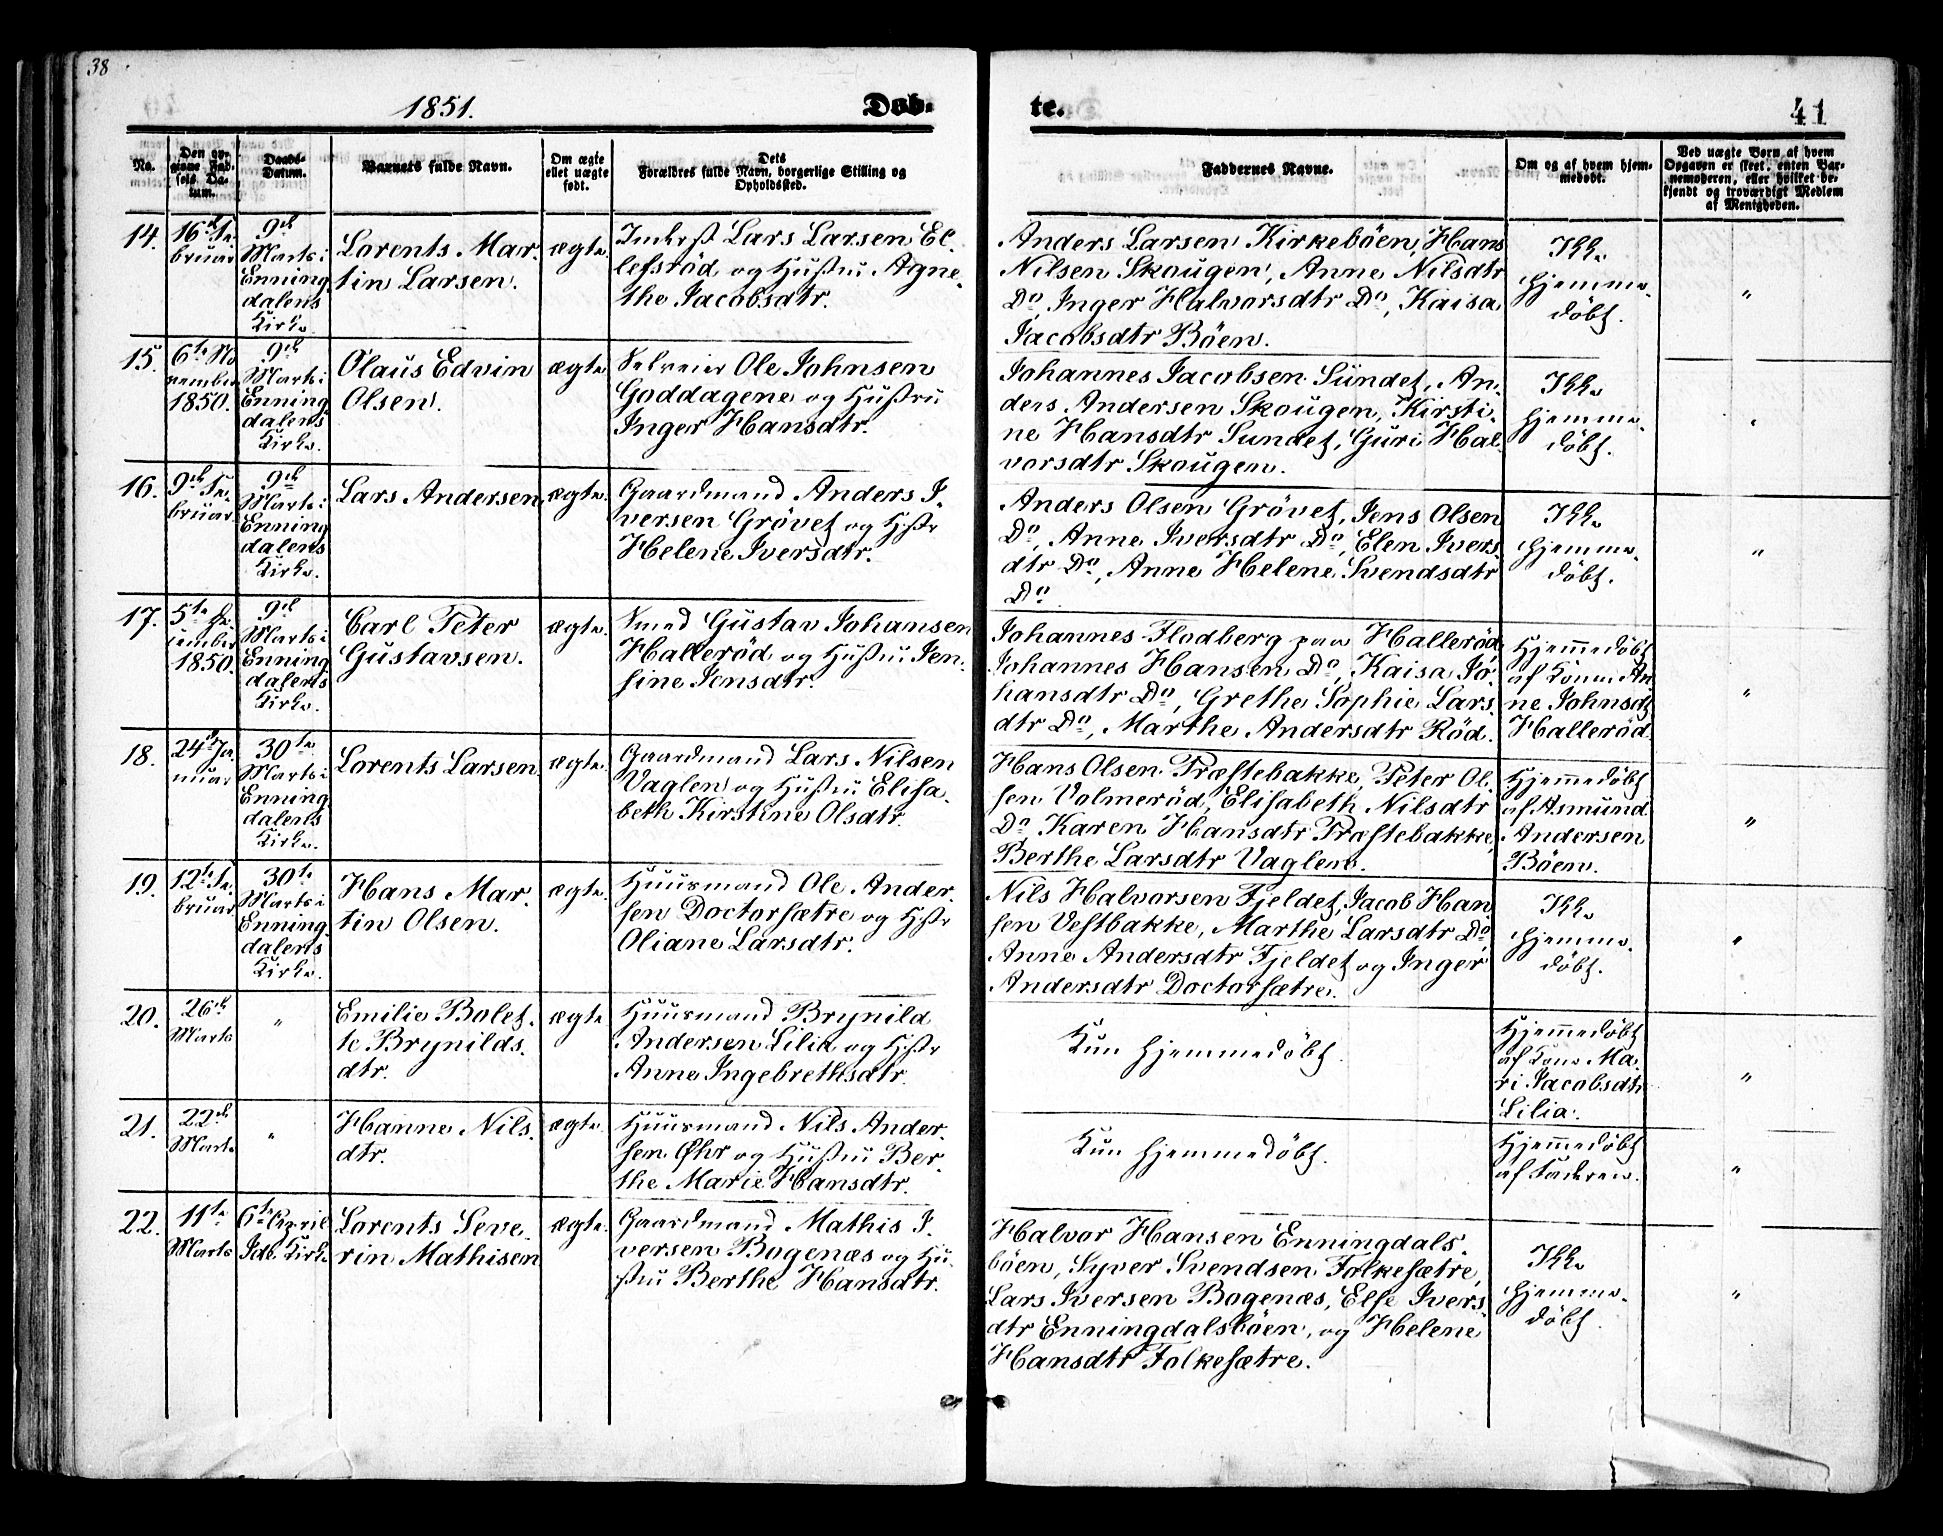 38
1851.
Døb-
te.
41
No.
Den op-
givne Fød-
sels Da-
tum.
Daabs-
Datum.
Barnets fulde Navn.
Om ægte
ellet uægte
født.
Dets
Forældres fulde Navn, borgerlige Stilling og
Opholdssted.
Faddernes Navne.
Om og af hvem hjem-
medøbt.
Ved uægte Børn af hvem
Opgaven er skeet, enten Bar-
nemoderen, eller hvilket be-
kjendt og troværdigt Medlem
af Menigheden.
14.
16de Fe-
bruar
9de
Marts i
Enning-
dalens
Kirke
Lorents Mar-
tin Larsen.
ægte
Inderst Lars Larsen El-
lefsröd og Hustru Agne-
the Jacobsdtr.
Anders Larsen Kirkeböen, Hans
Nilsen Skougen, Anne Nilsdtr
Do, Inger Halvorsdtr Do, Kaisa
Jacobsdtr Böen.
Ikke
hjemme-
döbt.
"
15.
6te No
vember
1850.
9de
Marts i
Enning-
dalens
Kirke.
Olaus Edvin
Olsen.
ægte
Selveier Ole Johnsen
Goddagene og Hustru
Inger Hansdtr.
Johannes Jacobsen Sundet, An-
ders Andersen Skougen, Kirsti-
ne Hansdtr Sundet, Guri Hal-
vorsdtr Skougen.
Ikke
hjemme-
döbt.
"
16.
9de Fe-
bruar
9de
Marts i
Enning
dalens
Kirke.
Lars Andersen
ægte.
Gaardmand Anders I-
versen Grövet og Hstr
Helene Iversdtr.
Anders Olsen Grövet, Jens Olsen
Do, Anne Iversdtr Do, Elen Ivers-
dtr Do, Anne Helene Svendsdtr
Do
Ikke
hjemme-
döbt.
"
17.
5te De-
cember
1850.
9de
Marts i
Enning-
dalens
Kirke.
Carl Peter
Gustavsen.
ægte.
Smed Gustav Johansen
Halleröd og Hustru Jen-
sine Jensdtr.
Johannes Flodberg paa Halleröd
Johannes Hansen Do, Kaisa Jo-
hansdtr Do, Grethe Sophie Lars-
dtr Do, Marthe Andersdtr Röd.
Hjemmedöbt
af Konen An
ne Johnsdtr
Halleröd.
"
18.
24de Ja-
nuar
30te
Marts i
Enning
dalens
Kirke.
Lorents Larsen.
ægte.
Gaardmand Lars Nilsen
Vaglen og Hustru Elisa-
beth Kirstine Olsdtr.
Hans Olsen Præstebakke, Peter Ol-
sen Volmeröd, Elisabeth Nilsdtr
Do Karen Hansdtr Præstebakke,
Berthe Larsdtr Vaglen.
Hjemmedöbt
af Asmund
Andersen
Böen.
"
19.
12te Fe-
bruar.
30te
Marts i
Enning-
dalens
Kirke.
Hans Mar-
tin Olsen.
ægte.
Huusmand Ole Ander-
sen Doctorsætre og Hstr
Oliane Larsdtr.
Nils Halvorsen Fjeldet, Jacob Han
sen Vestbakke, Marthe Larsdtr Do,
Anne Andersdtr Fjeldet og Inger
Andersdtr Doctorsætre.
Ikke
hjemme-
döbt.
"
20.
26de
Marts
"
Emilie Bolet-
te Brynilds-
dtr.
ægte
Huusmand Brynild
Andersen Lilia og Hstr
Anne Ingebrethsdtr.
Kun hjemmedöbt.
Hjemmedöbt
af Kone Ma-
ri Jacobsdtr
Lilia.
"
21.
22de
Marts
"
Hanne Nils-
dtr.
ægte.
Huusmand Nils Ander-
sen Øhr og Hustru Ber-
the Marie Hansdtr.
Kun hjemmedöbt.
Hjemmedöbt
af Faderen.
"
22.
11te
Marts
6te April
Ide Kirke
Lorents Seve-
rin Mathisen
ægte.
Gaardmand Mathis I-
versen Bogenæs og Hu-
stru Berthe Hansdtr.
Halvor Hansen Enningdals-
böen, Syver Svendsen Folkesætre,
Lars Iversen Bogenæs, Else Ivers-
dtr Enningdalsböen, og Helene
Hansdtr Folkesætre.
Ikke
hjemme-
döbt.
"